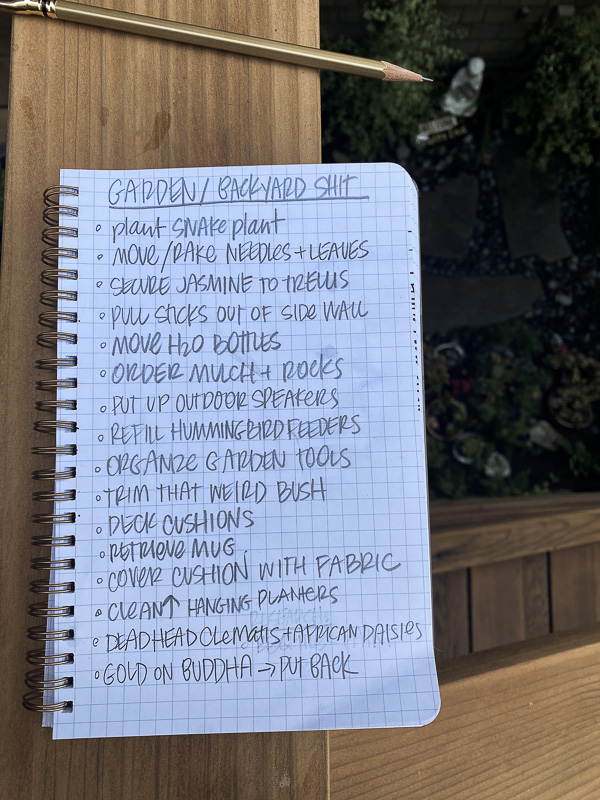 GARDEN/BACKYARD SHIT
plant SNAKE plant
MOVE/RAKE NEEDLES+LEAVES
SECURE JASMINE TO TRELLIS
PULL STICKS OUT OF SIDE WALL
MOVE H2O BOTTLES
ORDER MULCH + ROCKS
PUT UP OUTDOOR SPEAKERS
REFILL HUMMINGBIRD FEEDERS
ORGANIZE GARDEN TOOLS
TRIM THAT WEIRD BUSH
DECK CUSHIONS
RETRIEVE MUG
COVER CUSHION WITH FABRIC
CLEAN↑ HANGING PLANTERS
DEADHEAD CLEMATIS+AFRICAN DAISIES
GOLD ON BUDDHA → PUT BACK